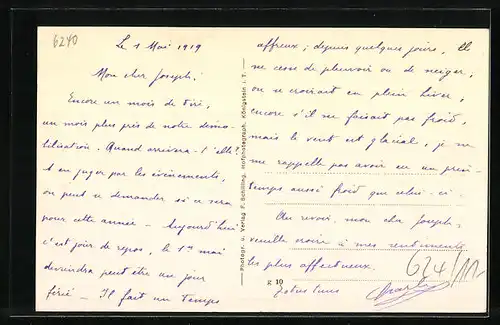 6240
Le 1 Mai 1919
Mon cher Joseph.
Encore un mois de tiré,
un mois plus près de notre démo-
bilisation. Quand arrivera-t-elle?
Et en juger par les événements,
on peut se demander si ce sera
pour cette année - Aujourd'hui
c'est jour de repos, le 1er mai
deviendra peut être un jour
férié - Il fait un temps
Photogr. u. Verlag F. Schilling, Hofphotograph, Königstein i. T.
affreux; depuis quelques jours, il
ne cesse de pleuvoir ou de neiger,
on se croirait en plein hiver,
encore s'il ne faisait pas froid,
mais le vent est glacial, je ne
me rappelle pas avoir eu un prin-
temps aussi froid que celui-ci -
Au revoir, mon cher Joseph,
veuille croire à mes sentiments
les plus affectueux.
g 10
624/11